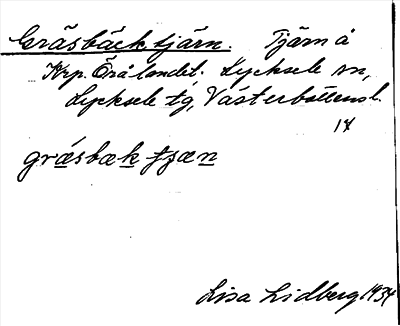 Gräsbäckstjärn. Tjärn å
Krp. Örålandet. Lycksele sn,
Lycksele tg, Västerbottens l.
17
græsbæk tjæn
Lisa Lidberg 1934